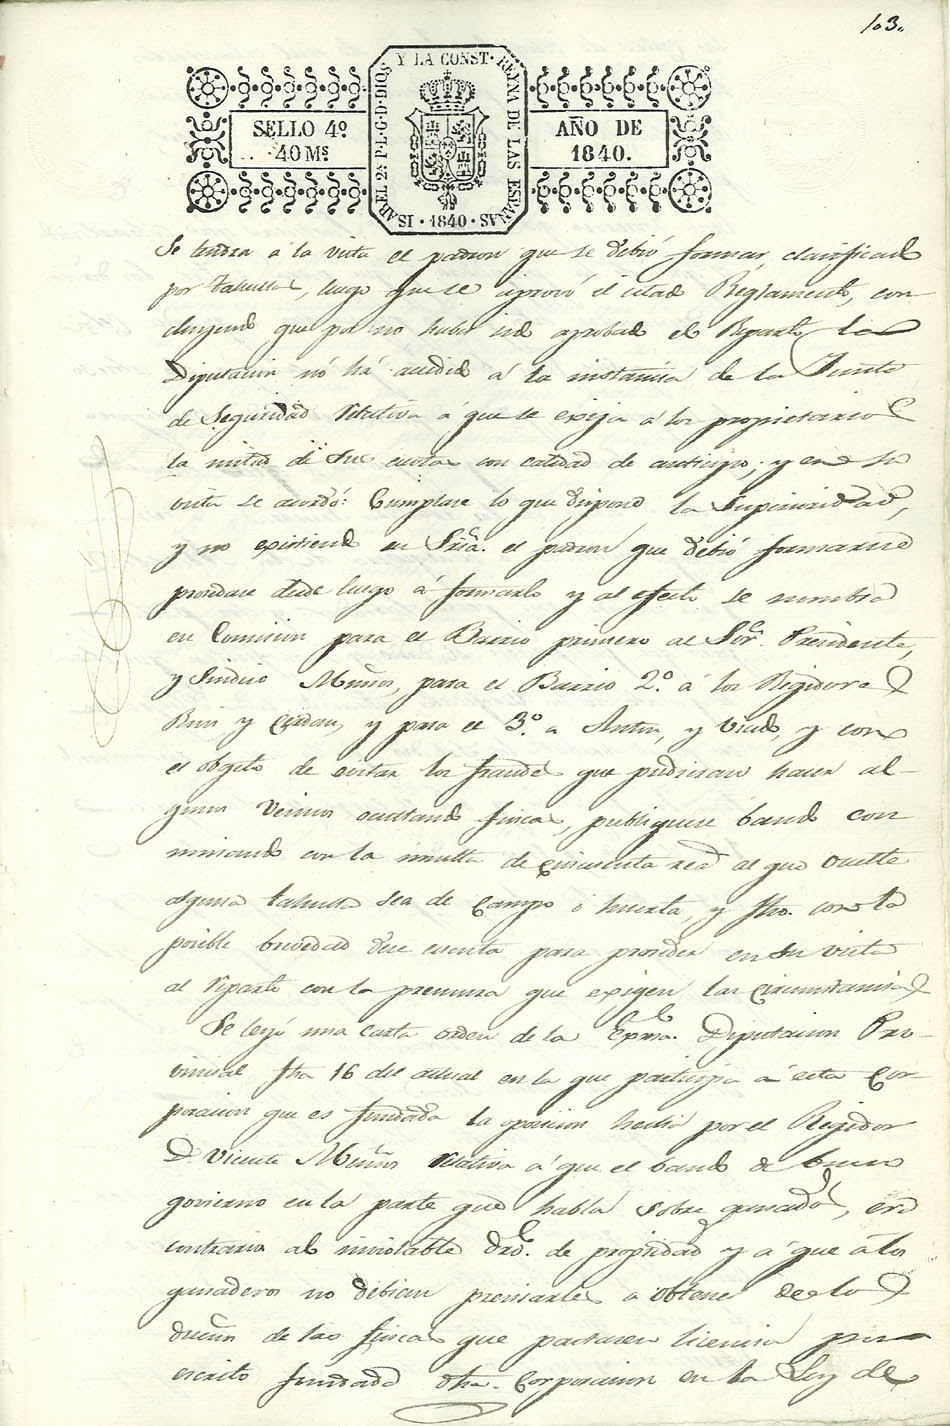 103.
SELLO 4º
40 Ms
ISABEL 2ª P.L.G.D.DIOS Y LA CONST. REYNA DE LAS ESPAÑAS
1840
AÑO DE
1840.
Se tendra á la vista el padron que se debió formar, clasificado
por tahullas, luego que se aprovó el citado Reglamento, con
cluyendo que por no haber sido aprobado el Reparto la
Diputacion nó há acedido á la instancia de la Junta
de Seguridad relativa á que se exija á los propietarios
la mitad de sus cuotas con calidad de anticipo; y en su
vista se acordó: Cumplase lo que dispone la Superioridad,
y no existiendo en Sria. el padron que debió formarse
procedase desde luego á formarlo y al efecto se nombra
en Comision para el Barrio primero al Sor. Presidente,
y Sindico Muñoz, para el Barrio 2.º á los Regidores
y para el 3.º a Anton, y y con
el objeto de evitar los fraudes que pudieran hacer al-
gunos Vecinos ocultando fincas, publiquese bando con
minando con la multa de cincuenta reas. al que oculte
alguna tahulla sea de Campo ó huerta, y fho. con la
posible brevedad dese cuenta para proceder en su vista
al reparto con la premura que exigen las circunstancias
Se leyó una carta orden de la Exma. Diputacion Pro-
vincial fha 16 del actual en la que participa á esta Cor-
poracion que es fundada la oposicion hecha por el Regidor
D. Vicente Muñoz relativa á que el bando de buen
govierno en la parte que habla sobre ganados, era
contrario al inviolable dro. de propiedad y á que á los
ganaderos no debian precisarles a obtener de los
dueños de las fincas que pastasen licencia por
escrito fundada dha. Corporacion en la Ley de